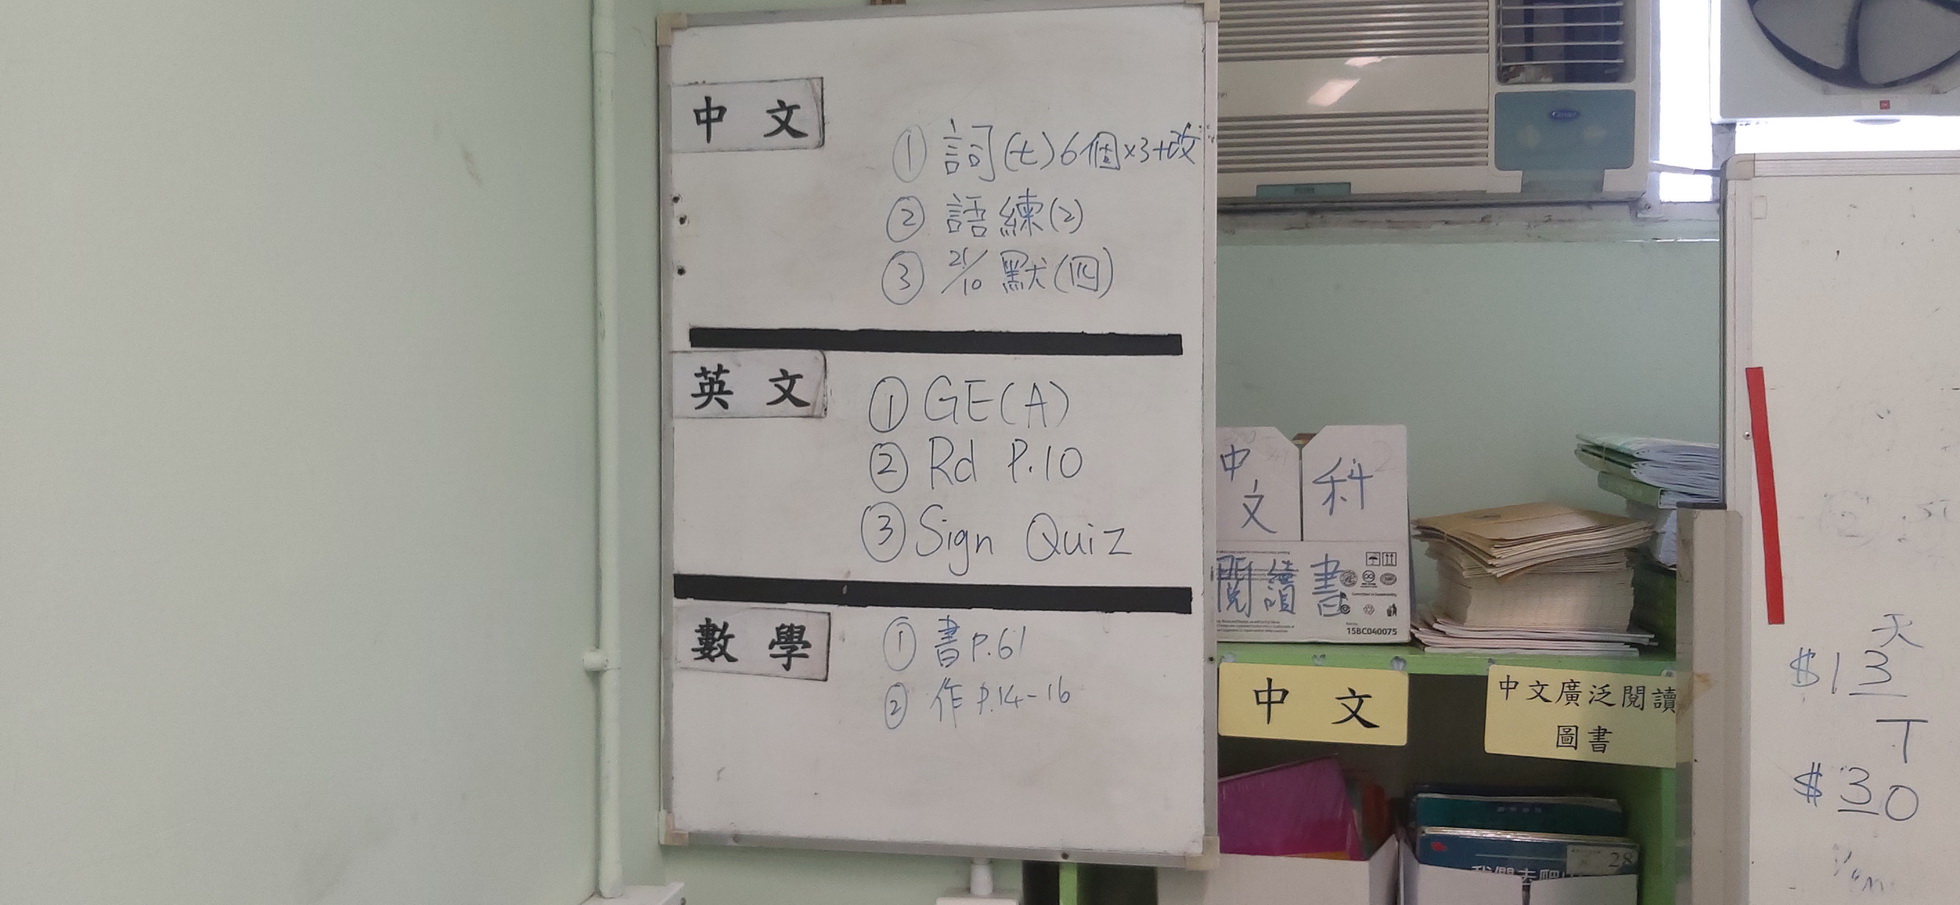 中文
① 詞(七)6個×3+改
② 語練(2)
③ 21/10 默(四)
英文
① GE(A)
② Rd P.10
③ Sign Quiz
數學
① 書P.61
② 作P.14-16
中文科
閱讀書
15BC040075
中文
中文廣泛閱讀
圖書
28
天
$13
T
$30